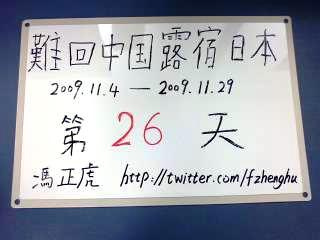 難回中国露宿日本
2009.11.4 — 2009.11.29
第 26 天
馮正虎 http://twitter.com/fzhenghu